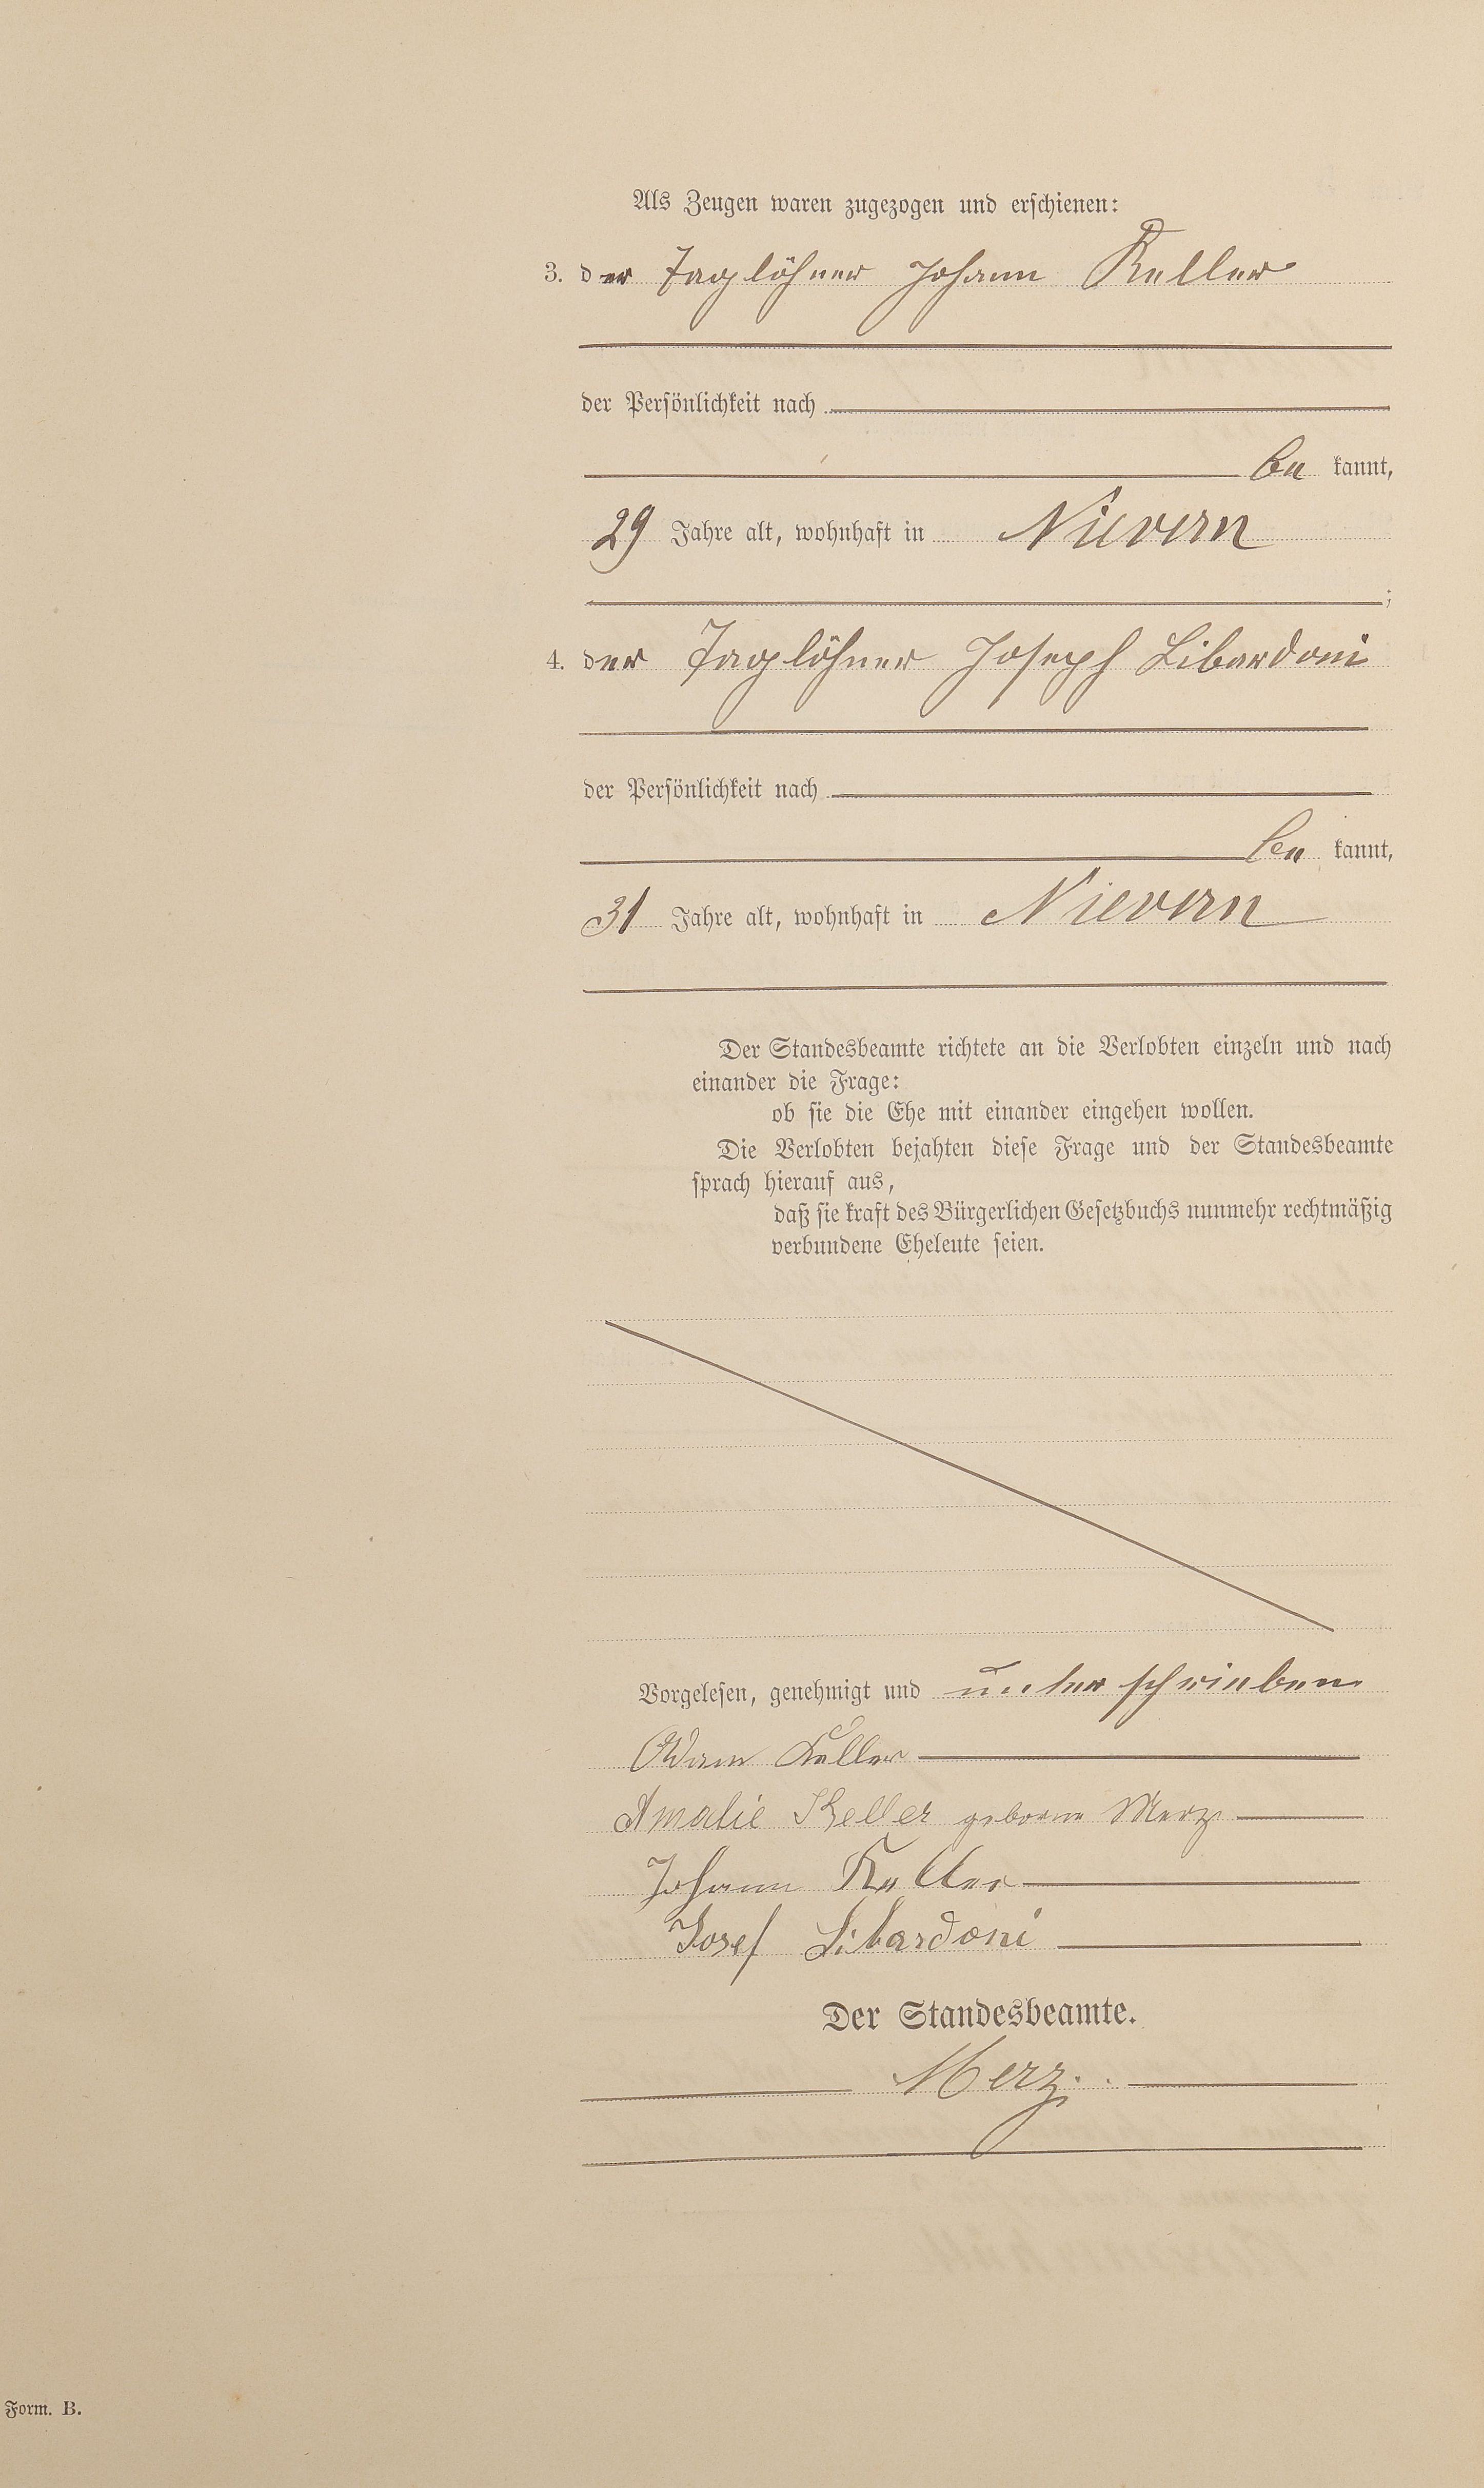 Als Zeugen waren zugezogen und erschienen:
3. der Taglöhner Johann Keller
der Persönlichkeit nach
be kannt,
29 Jahre alt, wohnhaft in Nievern
;
4. der Taglöhner Joseph Libardoni
der Persönlichkeit nach
be kannt,
31 Jahre alt, wohnhaft in Nievern
Der Standesbeamte richtete an die Verlobten einzeln und nach
einander die Frage:
ob sie die Ehe mit einander eingehen wollen.
Die Verlobten bejahten diese Frage und der Standesbeamte
sprach hierauf aus,
daß sie kraft des Bürgerlichen Gesetzbuchs nunmehr rechtmäßig
verbundene Eheleute seien.
Vorgelesen, genehmigt und unterschrieben
Adam Keller
Amalie Keller geborne Merz
Johann Keller
Josef Libardoni
Der Standesbeamte.
Merz.
Form. B.